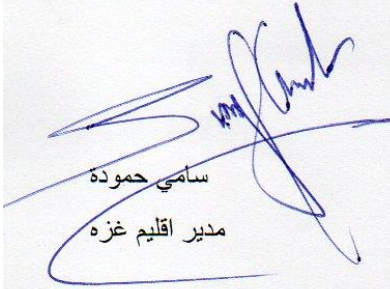 سامي حمودة
مدير اقليم غزه